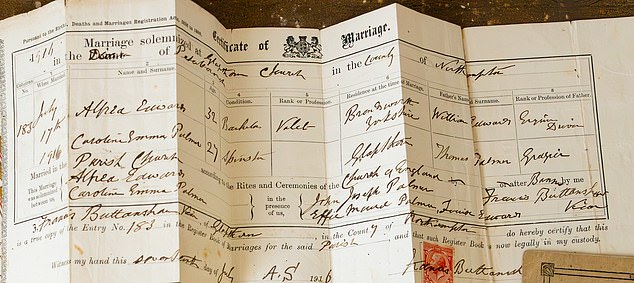 Pursuant to the Births, Deaths and Marriages Registration Acts
Certificate of Marriage.
1916 Marriage solemnized at Church in the County of Northampton
in the of
When Married. Name and Surname. Age Condition. Rank or Profession. Residence at the time of Marriage. Father's Name and Surname. Rank or Profession of Father.
183 July 17th 1916
Alfred Edwards 32 Bachelor Valet Brodsworth Yorkshire William Edwards Engine Driver
Caroline Emma Palmer 27 Spinster Glapthorn Thomas Palmer Grazier
Married in the Parish Church according to the Rites and Ceremonies of the Church of England or after Banns by me
This Marriage was solemnized between us,
Alfred Edwards
Caroline Emma Palmer
in the presence of us,
John Joseph Palmer
Effie Palmer Louise Edwards
Francis Buttanshaw
Vicar
I, Francis Buttanshaw of Glapthorn in the County of Northampton do hereby certify that this
is a true copy of the Entry No. 183 in the Register Book of Marriages for the said Parish and that such Register Book is now legally in my custody.
Witness my hand this seventeenth day of July A.D. 1916 Francis Buttanshaw